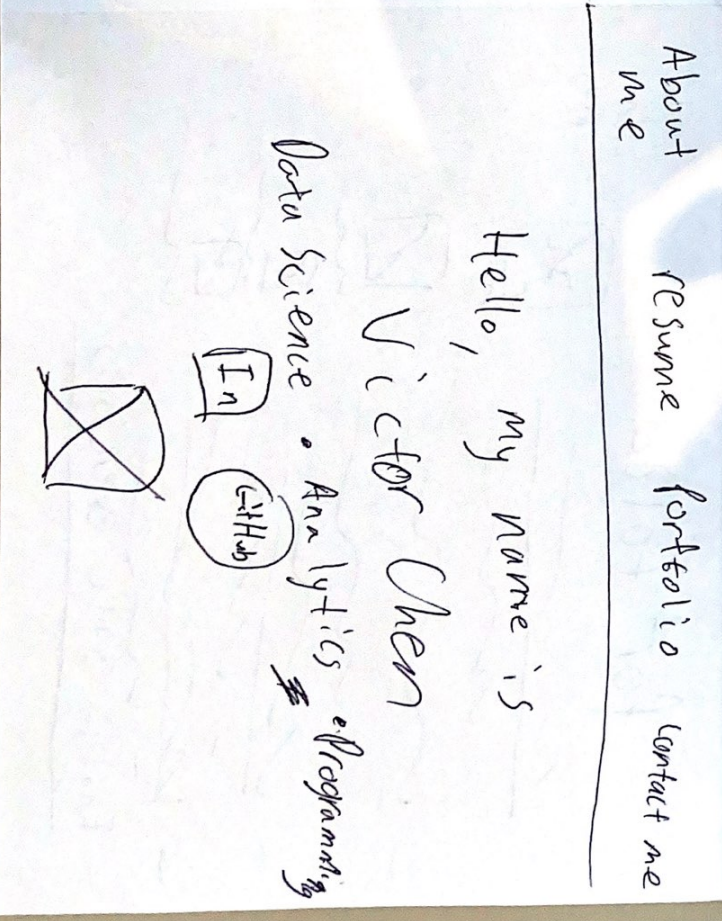 About me resume Portfolio contact me
Hello, my name is
Victor Chen
Data Science • Analytics • Programming
In GitHub